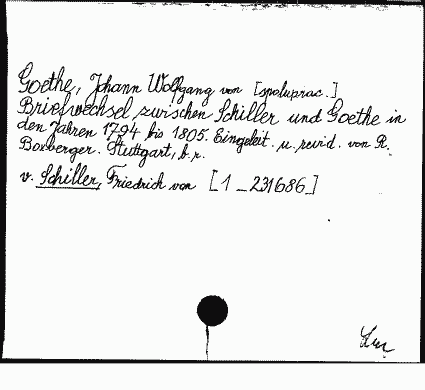 Goethe, Johann Wolfgang von [spoluprac.]
Briefwechsel zwischen Schiller und Goethe in
den Jahren 1794 bis 1805. Eingeleit. u. revid. von R.
Boxberger. Stuttgart, b.r.
v. Schiller, Friedrich von [1_231686]